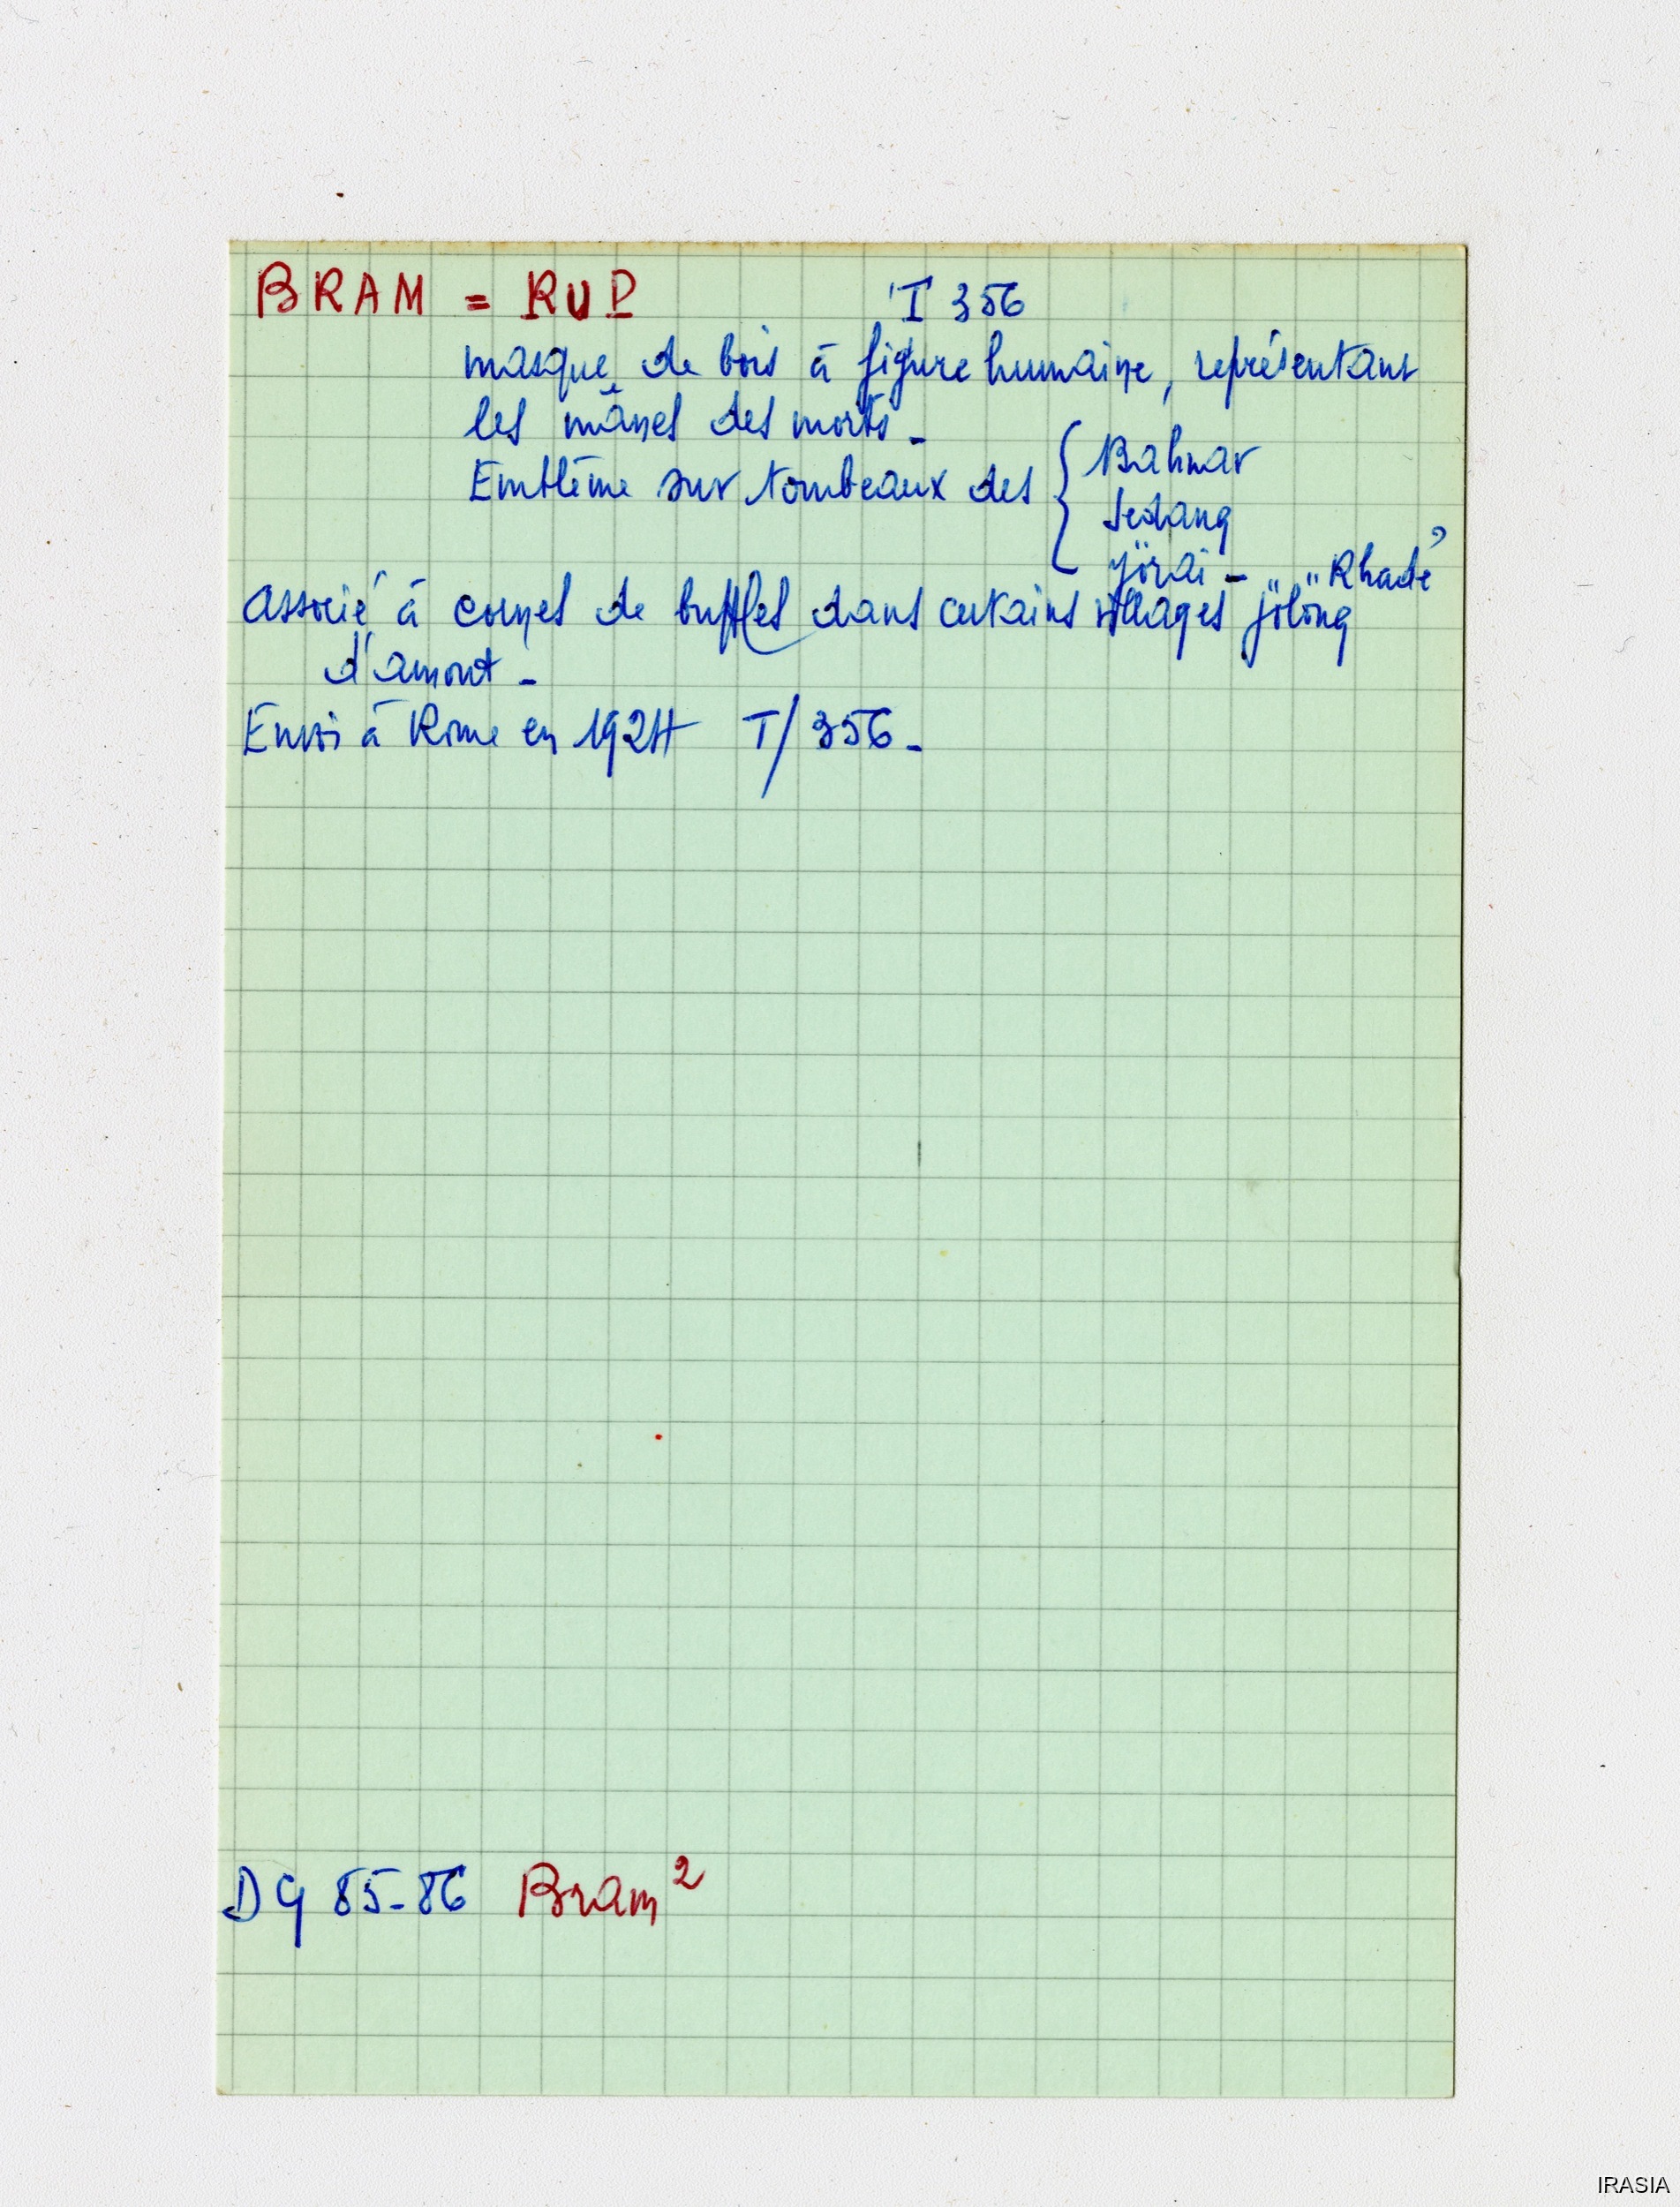 BRAM = RUP T 356
masque de bois à figure humaine, représentant
les mânes des morts -
Emblème sur tombeaux des { Bahnar
Sedang
Jörai - Rhadé ?
Associé à cornes de buffles dans certains villages Jölöng
d'amont -
Envoi à Rome en 1924 T/356 -
DG 85-86 Bram²
IRASIA